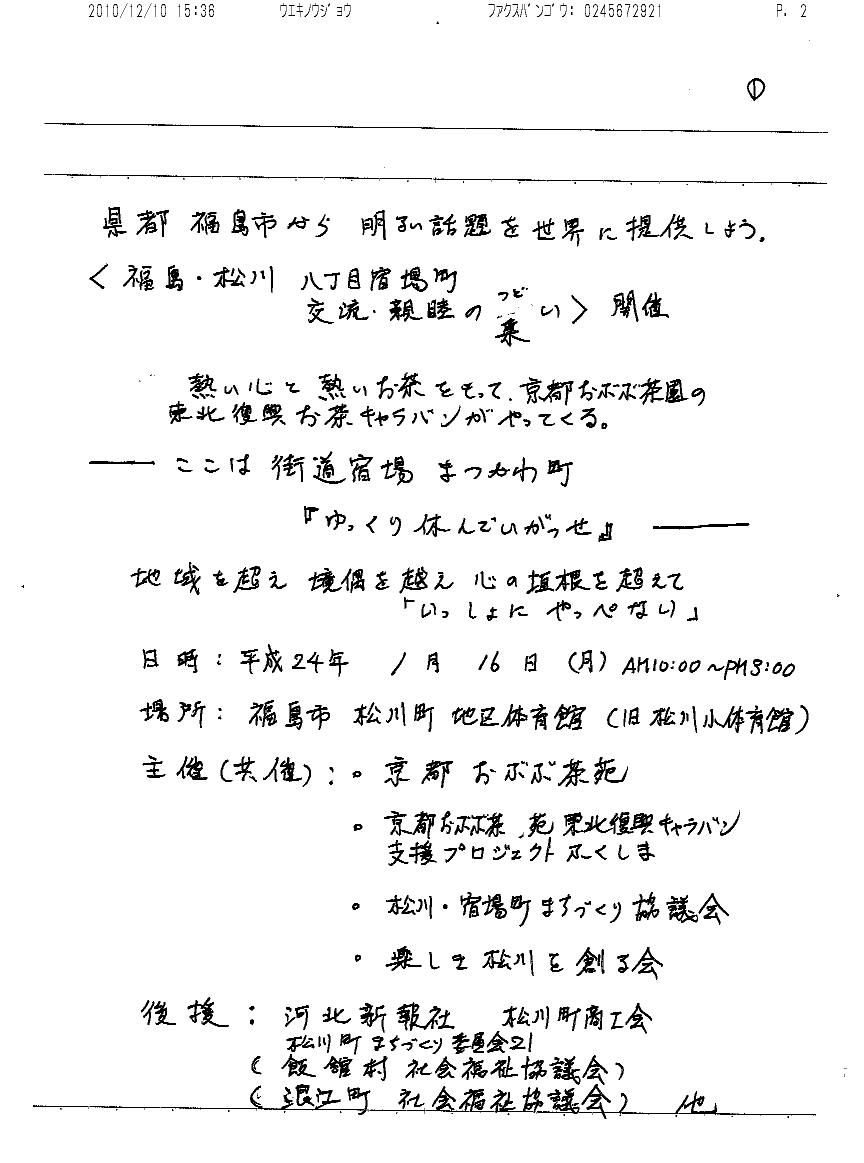 2010/12/10 15:36 ウエキノウジョウ ファクスバンゴウ: 0245672921 P. 2
①
県都 福島市から 明るい話題を世界に提供しよう。
< 福島・松川 八丁目宿場町
交流・親睦の集い> 開催
つど
熱い心と 熱いお茶をもって、京都おぶぶ茶園の
東北復興お茶キャラバンがやってくる。
―― ここは 街道宿場 まつかわ町
『ゆっくり休んでいがっせ』 ――
地域を超え 境偶を越え 心の垣根を超えて
「いっしょに やっぺない」
日時：平成24年 1月 16日 (月) AM10:00〜PM3:00
場所： 福島市 松川町 地区体育館 (旧松川小体育館)
主催(共催)：。京都 おぶぶ茶苑
。京都おぶぶ茶苑 東北復興キャラバン
支援プロジェクトふくしま
。松川・宿場町まちづくり協議会
。楽しき松川を創る会
後援： 河北新報社 松川町商工会
松川町まちづくり委員会21
(飯舘村 社会福祉協議会)
(浪江町 社会福祉協議会) 他